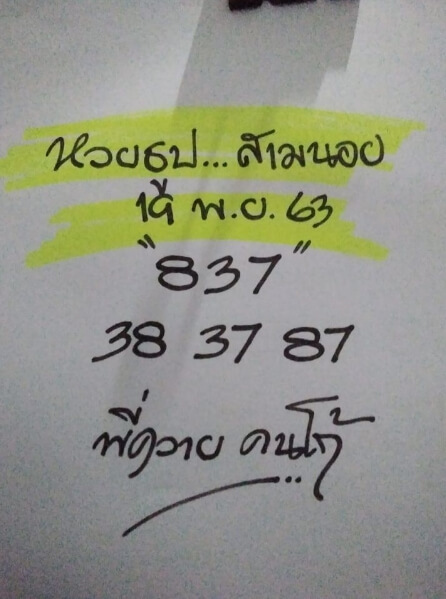 หวยธูป...สามนอย
พ.ย. 63
"837"
38 37 87
พี่ควาย คนโก้